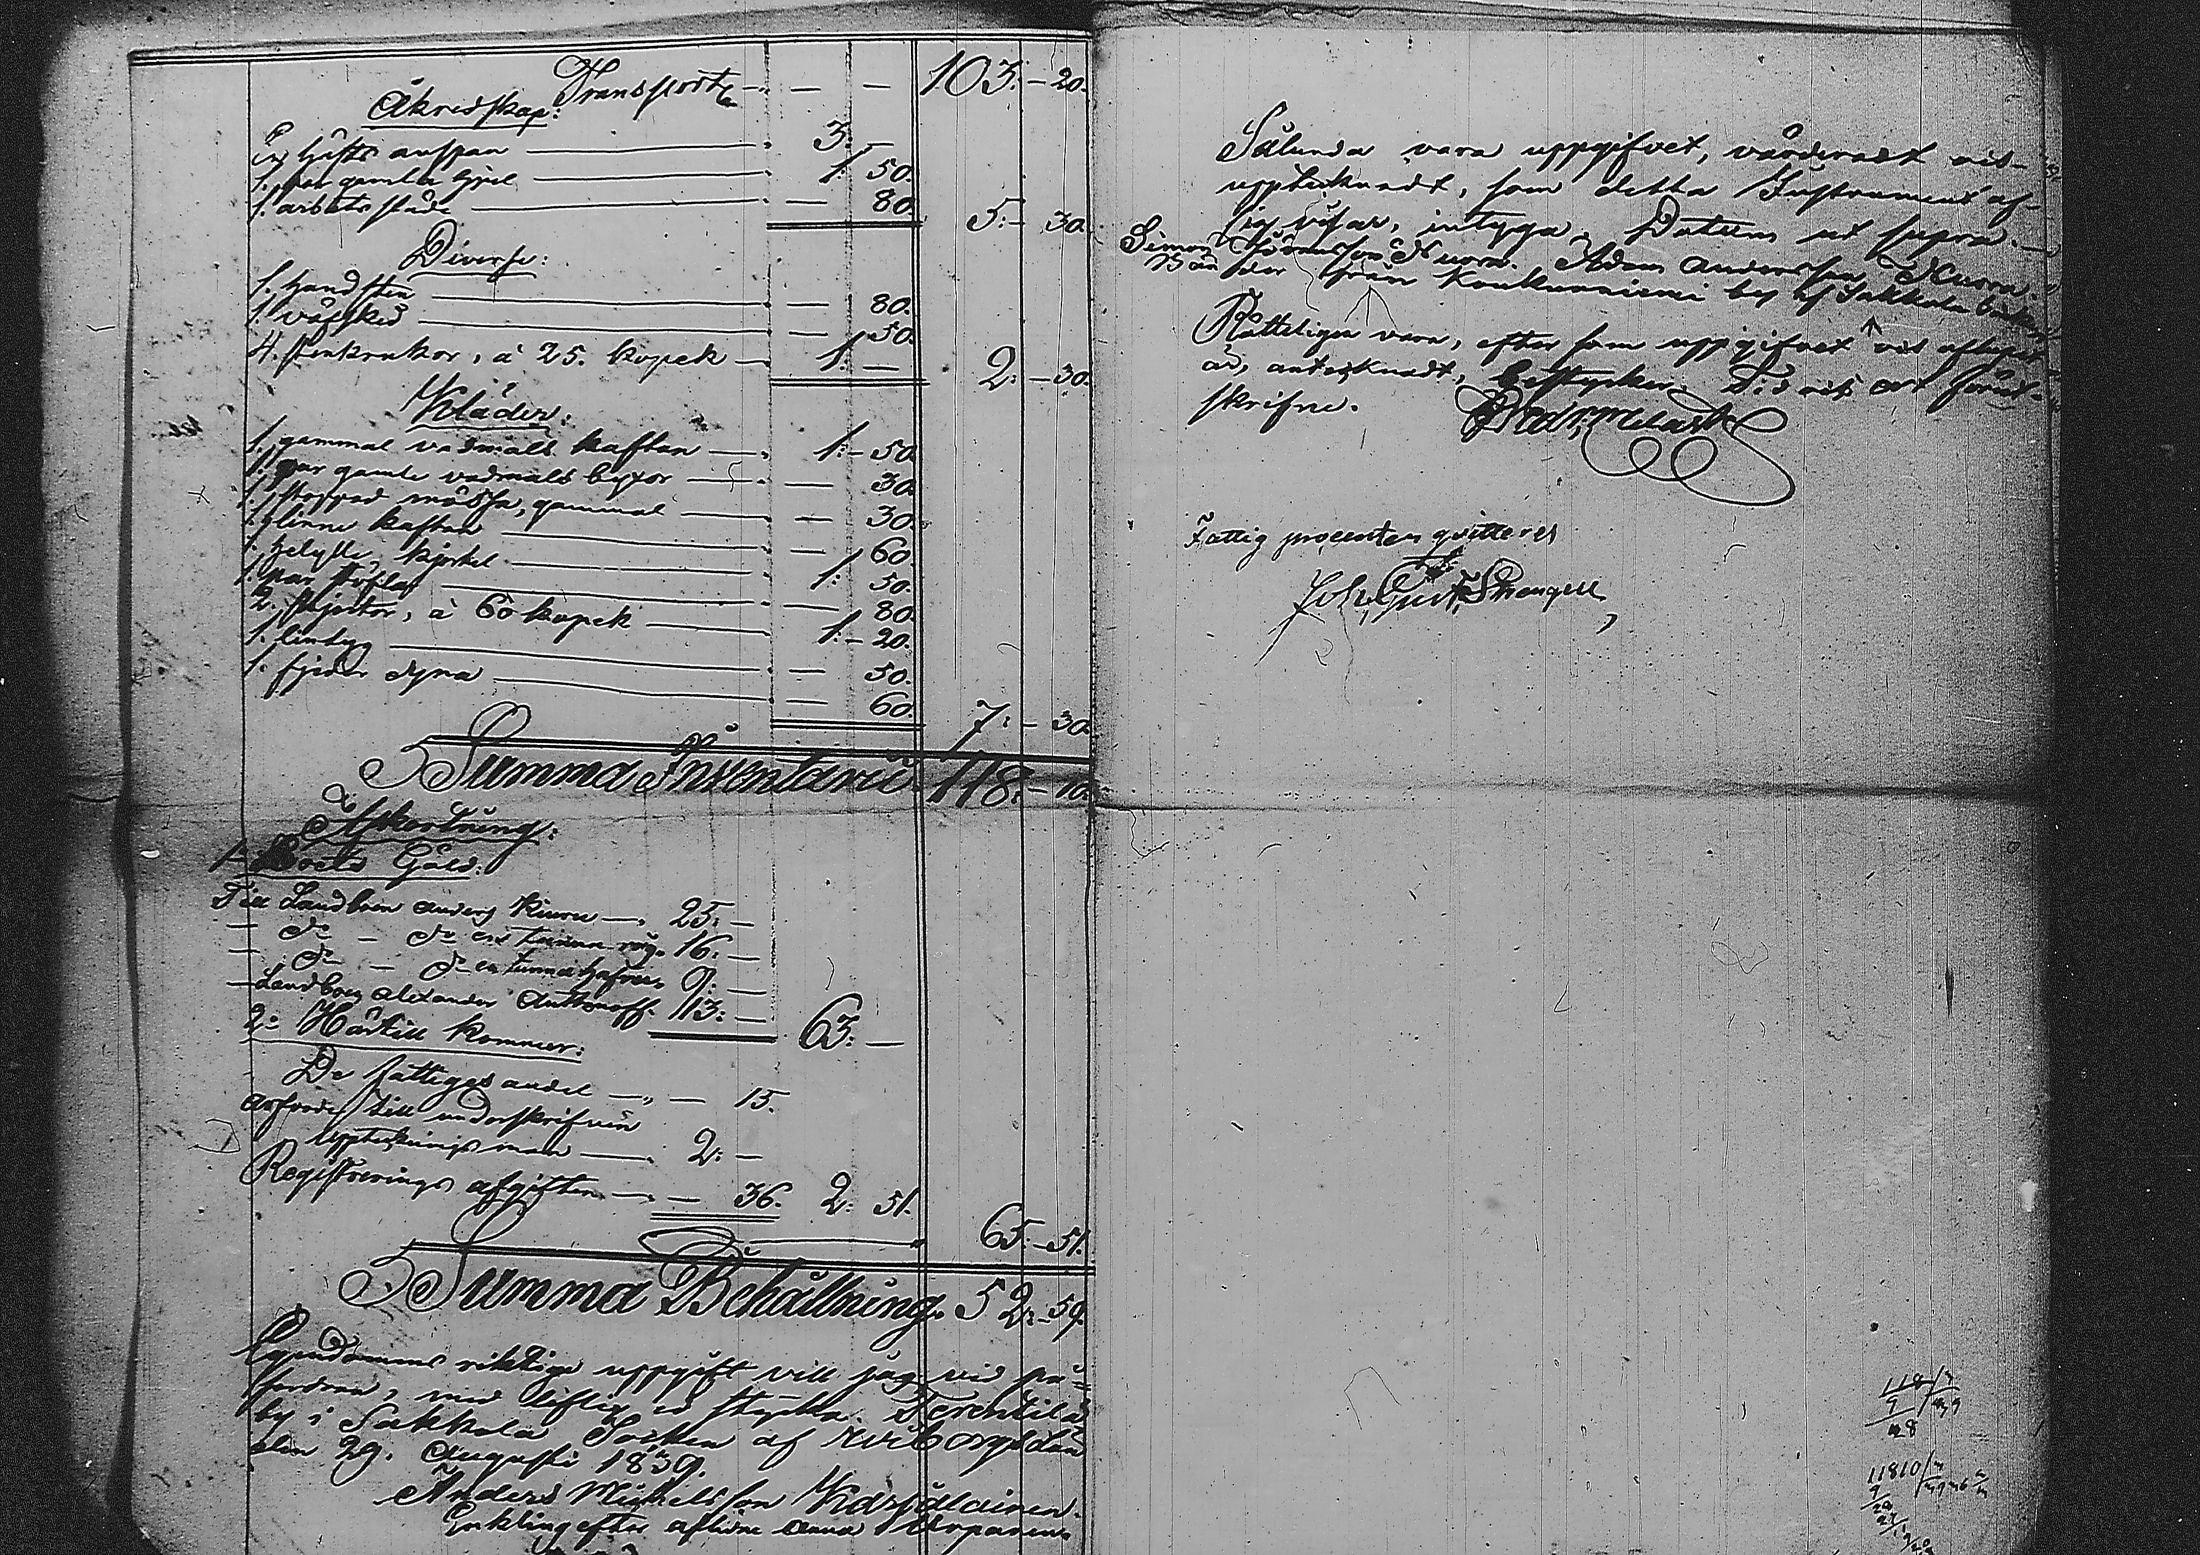 Transport — — — 103: — 20.
Åkredskap:
En hästs anspan — 3: —
1. par gamla hjul — 1: 50.
1. arbets släde — — 80. 5: — 30.
Diverse:
1. handsten — — 80.
1. väfsked — — 50.
4. stenkrukor, à 25. kopek — 1: — 2: — 30.
Kläder:
1. gammal vadmals kaftan — 1: — 50.
1. par gamla vadmals byxor — — 30.
1. stoppad mössa, gammal — — 30.
1. linne kaftan — — 60.
1. halylle kjortel — 1: 50.
1. par stöflar — — 80.
2. skjortor, à 60 kopek — 1: — 20.
1. lintyg — — 50.
1. fjäder dyna — — 60. 7: — 30.
Summa Inventarii 118: — 10.
Afkortning:
1o Boets Gäld:
Till Landbon Anders Kiuru — 25: —
— do — do en tunna råg 16: —
— do — do en tunna hafra 9: —
— Landbon Alexander Anttonoff 13: — 63: —
2o Härtill kommer:
De fattiges andel — — 15.
Arfvode till underskrifven
Uppteckningsman — 2: —
Registrerings afgiften — — 36. 2: 51.
65: — 51.
Summa Behållning 52: — 59.
Egendomens riktiga uppgift vill jag, vid på-
fordran, med liflig ed styrka. Terentilä
by i Sakkola Socken af Wiborgs Län
den 29. Augusti 1839.
Anders Michelsson Karjalainen
Enkling efter aflidne Anna
Sålunda vara uppgifvet, värderadt och
upptecknadt, som detta Instrument af
sig visar, intyga. Datum ut supra.
Simon Nurm. Adam Andersson
Bönder från Konkunniemi by af Sakkola Socken
Rätteligen vara, efter som uppgifvet och
är, antecknadt, bestyrker. Tid och ort förut-
skrifne.
Fattig procenten qvitteres
Joh. Gust. Strangell
118
9
28
11810
9
28
27